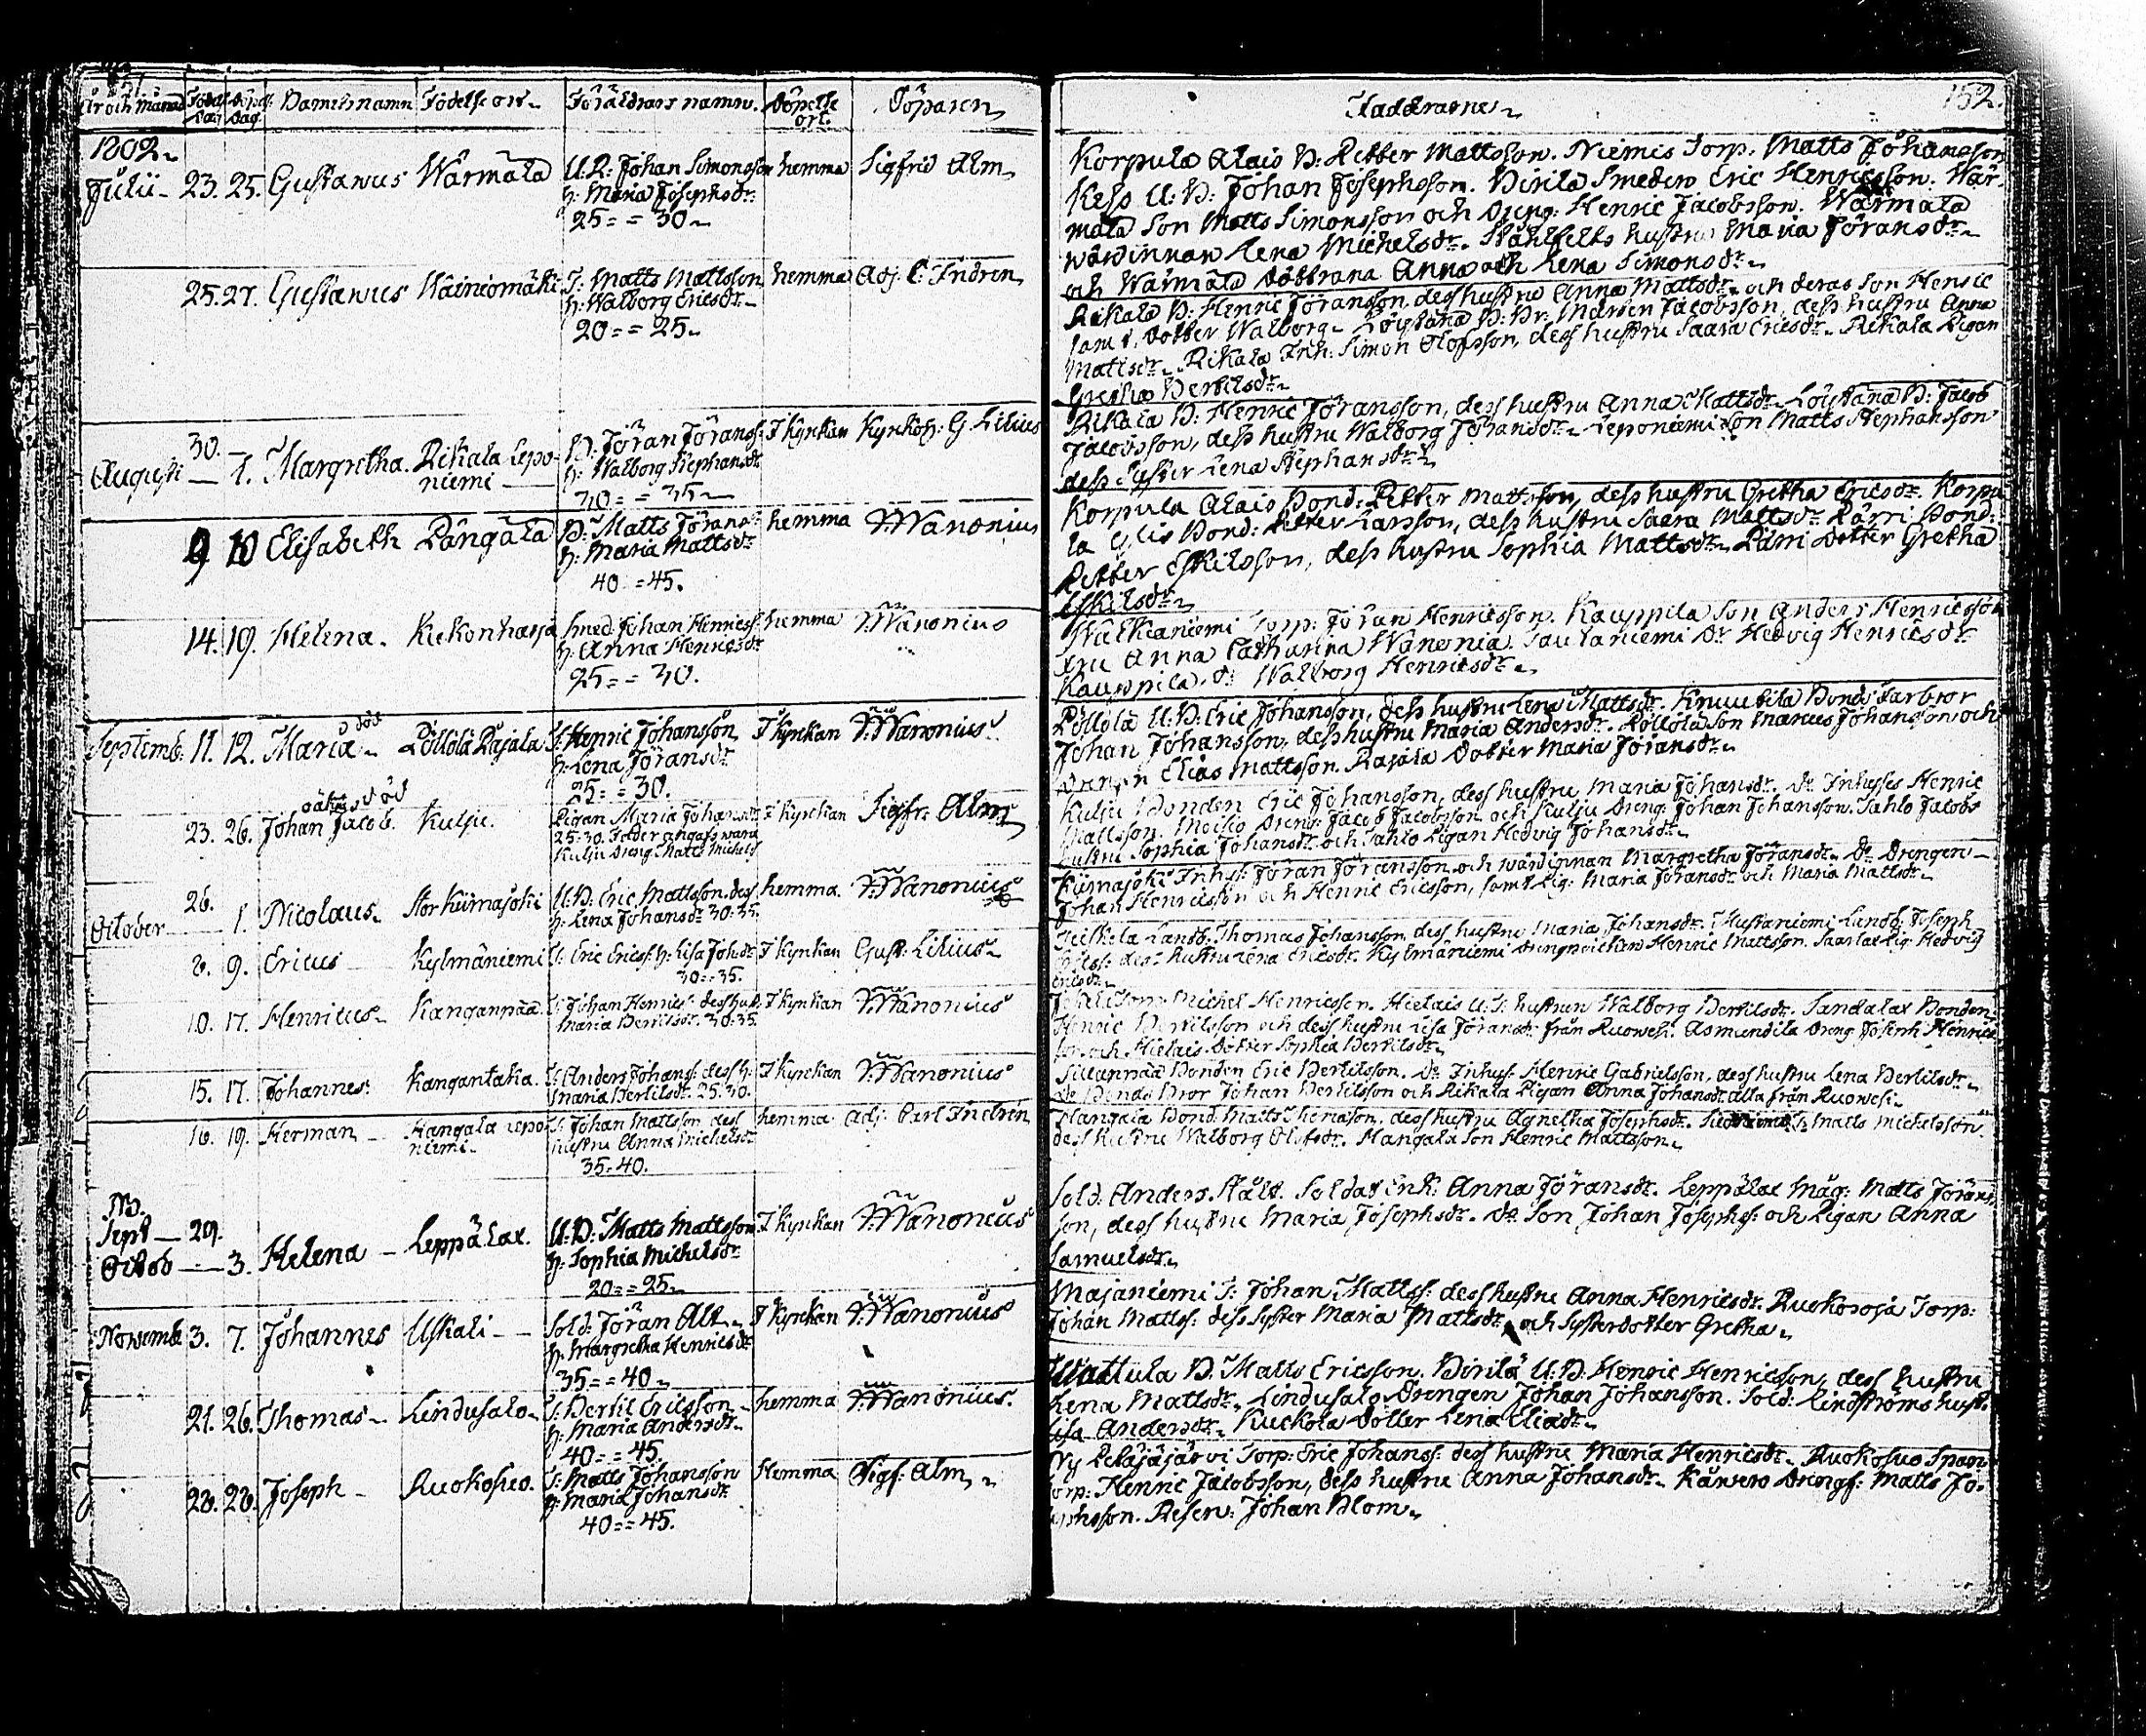 År och Månad Födelse Dag Döpelse Dag Barnets namn Födelse ort Föräldrars namn Döpelse ort. Döparen
1802.
Julii 23. 25. Gustavus Wärmälä U.B: Johan Simonsson hemma Sigfrid Alm
h: Maria Josephsdr:
25 = = 30
25. 27. Gustavus Wäiniömäki T: Matts Mattsson hemma Adj. C. Indren
h: Walborg Ericsdr
20 = = 25
30.
Augusti 1. Margretha. Rikala Lepo- B: Jöran Jöranss: I Kyrkan Kyrkoh: G. Lilius
niemi h: Walborg Stephansdr
30 = = 35
9 10 Elisabeth Pångälä B: Matts Jöranss: hemma V: Wanonius
h: Maria Mattsdr
40 = 45.
14. 19. Helena. Kukonharja Smed: Johan Henricss: hemma V: Wanonius
h: Anna Henricsdr
25 = = 30.
död
Septemb: 11. 12. Maria Pöllölä Rajala T: Henric Johansson I Kyrkan V: Wanonius
h: Lena Jöransdr
25 = = 30.
oäkta död
23. 26. Johan Jacob. Kulju. Pigan Maria Johansdr I Kyrkan Sigfr: Alm
25-30. Fader angafs wara
Kulju Dreng: Matts Michelss
26.
October 1. Nicolaus Stor Kiimajoki U.B: Eric Mattsson dess hemma. V: Wanonius
h: Lena Johansdr 30:35.
8. 9. Ericus Kylmäniemi T: Eric Ericss: h: Lisa Joh:dr I Kyrkan Gust: Lilius
30 = 35.
10. 17. Henricus Kanganpää T: Johan Henricss: dess hust: I Kyrkan V: Wanonius
Maria Bertilsdr. 30.35.
15. 17. Johannes: Kangantaka. T: Anders Johanss: dess h: I Kyrkan V: Wanonius
Maria Bertilsdr. 25.30.
16. 19. Herman Hangala Lepo- T: Johan Mattsson dess hemma Adj: Carl Indrén
niemi hustru Anna Michelsdr
35-40.
Sept 29.
Octob 3. Helena Leppälax. U.B: Matts Mattsson I Kyrkan V: Wanonius
h: Sophia Michelsdr
20 = = 25
Novemb: 3. 7. Johannes Uskali Sold: Jöran Alt I Kyrkan V: Wanonius
h: Margretha Henricsdr
35 = = 40
21. 26. Thomas Lindusalo T: Bertil Ericsson hemma V: Wanonius.
h: Maria Andersdr
40 = = 45.
28. 28. Joseph Ruokosuo. T: Matts Johansson Hemma Sigf: Alm
h: Maria Johansdr
40 = = 45.
Faddrarne 152.
Korpula Alais B: Petter Mattsson. Niemis Torp. Matts Johansson
Kess U: B: Johan Josephsson. Birilä Smeden Eric Henricsson. Wär-
mälä Son Matts Simonsson och Dreng: Henric Jacobsson. Wärmälä
wärdinnan Lena Michelsdr. Ståhlfelts hustru Maria Jöransdr
och Wärmälä döttrarna Anna och Lena Simonsdr
Rikala B: Henric Jöransson dess hustru Anna Mattsdr och deras Son Henric
samt dotter Walborg. Löytänä B: Br: Mårten Jacobsson, dess hustru Anna
Mattsdr. Rikala Inh: Simon Olofsson, dess hustru Saara Ericsdr. Rikala Pigan
Gretha Bertilsdr
Rikala B: Henric Jöransson, dess hustru Anna Mattsdr. Löytänä B: Jacob
Jacobsson, dess hustru Walborg Jöransdr. Leponiemi Son Matts Stephansson
dess Syster Lena Stephansdr
Korpula Alais Bond: Petter Mattsson, dess hustru Gretha Ericsdr. Korpu
la Bond: Petter Larsson, dess hustru Saara Mattsdr Pärri Bond:
Petter Eskilsson, dess hustru Sophia Mattsdr. Pärri Dotter Gretha
Eskilsdr
Walkianiemi Torp: Jöran Henricsson. Kauppila Son Anders Henricsson
Fru Anna Catharina Wanonia. Saulaniemi Dr Hedvig Henricsdr
Kauppila. dr Walborg Henricsdr
Pöllölä U: B: Eric Johansson, dess hustru Lena Mattsdr. Knuutila Bond: Farbror
Johan Johansson, dess hustru Maria Andersdr. Pöllölä Son Marcus Johansson och
Drengen Elias Mattsson. Rajala Dotter Maria Jöransdr
Kulju Bonden Eric Johansson, dess hustru Maria Johansdr. Do Inhyses Henric
Mattsson. Moisio Dreng: Jacob Jacobsson och Kulju Dreng: Johan Johansson. Tahlo Jacobs
hustru Sophia Johansdr och Tahlo Pigan Hedvig Johansdr
Kiimajoki Inhys: Jöran Jöransson och wärdinnan Margretha Jöransdr. Do Drengen
Johan Henricsson och Henric Ericsson, samt Pig: Maria Jöransdr och Maria Mattsdr
Landb: Thomas Johansson dess hustru Maria Johansdr. Mustaniemi Landb: Joseph
dess hustru Lena Ericsdr. Kylmäniemi Henric Mattsson. Pig: Hedvig
Ericsdr
Michel Henricsson. Hielais U: B: hustrun Walborg Bertilsdr. Sandalax Bonden
Henric Bertilsson och dess hustru Lisa Jöransdr från Ruowesi. Asmundila Dreng Joseph Henrics
son och Hielais Dotter Sophia Bertilsdr
Bonden Eric Bertilsson. Do Inhys: Henric Gabrielsson, dess hustru Lena Bertilsdr
Do Bonds Bror Johan Bertilsson och Rikala Pigan Anna Johansdr alla från Ruowesi
Hangala Bond: Matts dess hustru Agnetha Josephsdr. T: Matts Michelsson
dess hustru Walborg Olofsdr. Hangala Son Henric Mattsson
Sold: Anders Stålt. Soldat Enk: Anna Jöransdr. Leppälax Måg: Matts Jörans
son, dess hustru Maria Josephsdr. Do Son Johan Josephss: och Pigan Anna
Samuelsdr
Majaniemi T: Johan Mattss: dess hustru Anna Henricsdr. Ruokosoja Torp:
Johan Mattss: dess Syster Maria Mattsdr och Systerdotter Gretha
Mattula B. Matts Ericsson. Birilä U: B: Henric Henricsson, dess hustru
Lena Mattsdr. Lindusalo Drengen Johan Johansson. Sold: Lindströms hust:
Lisa Andersdr. Kuckola Dotter Lena Eliædr
Ny Petäjäjärvi Torp: Eric Johanss: dess hustru Maria Henricsdr. Ruokosuo
Torp: Henric Jacobsson, dess hustru Anna Johansdr. Dreng: Matts Jo-
sephsson. Reserv: Johan Blom